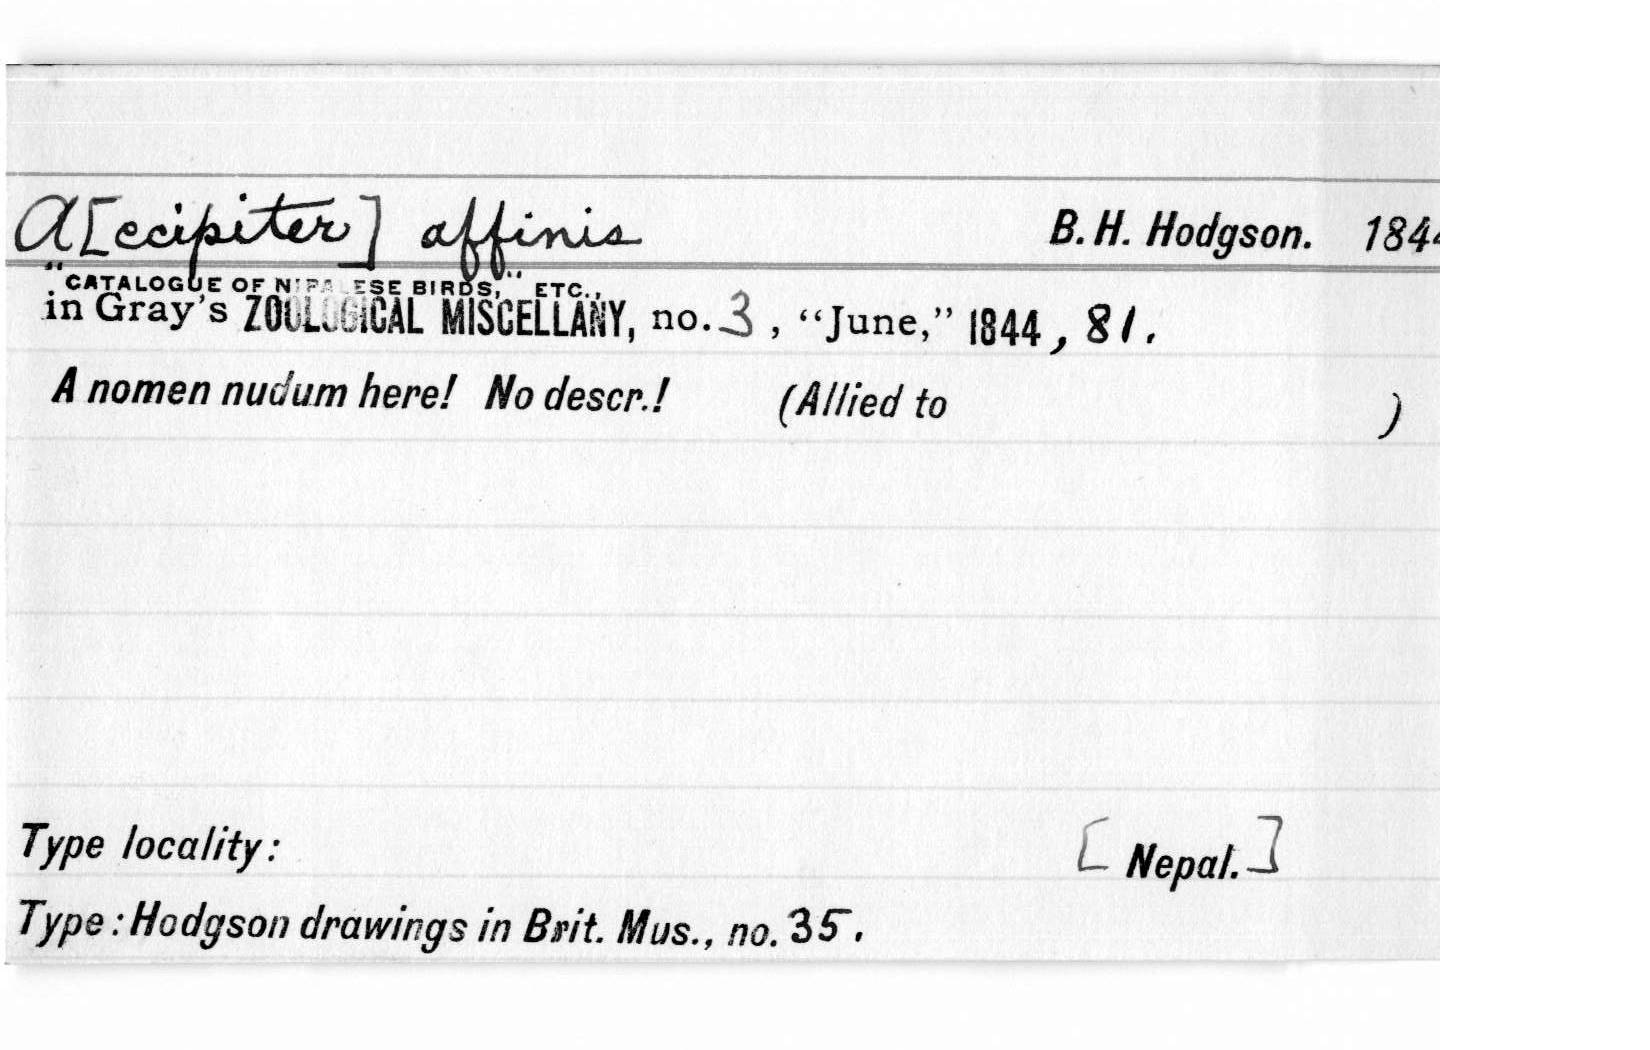 A[ccipiter] affinis B. H. Hodgson. 1844
"CATALOGUE OF NIPALESE BIRDS," ETC.,
in Gray's ZOOLOGICAL MISCELLANY, no. 3, "June," 1844, 81.
A nomen nudum here! No descr.! (Allied to )
Type locality: [Nepal.]
Type: Hodgson drawings in Brit. Mus., no. 35.